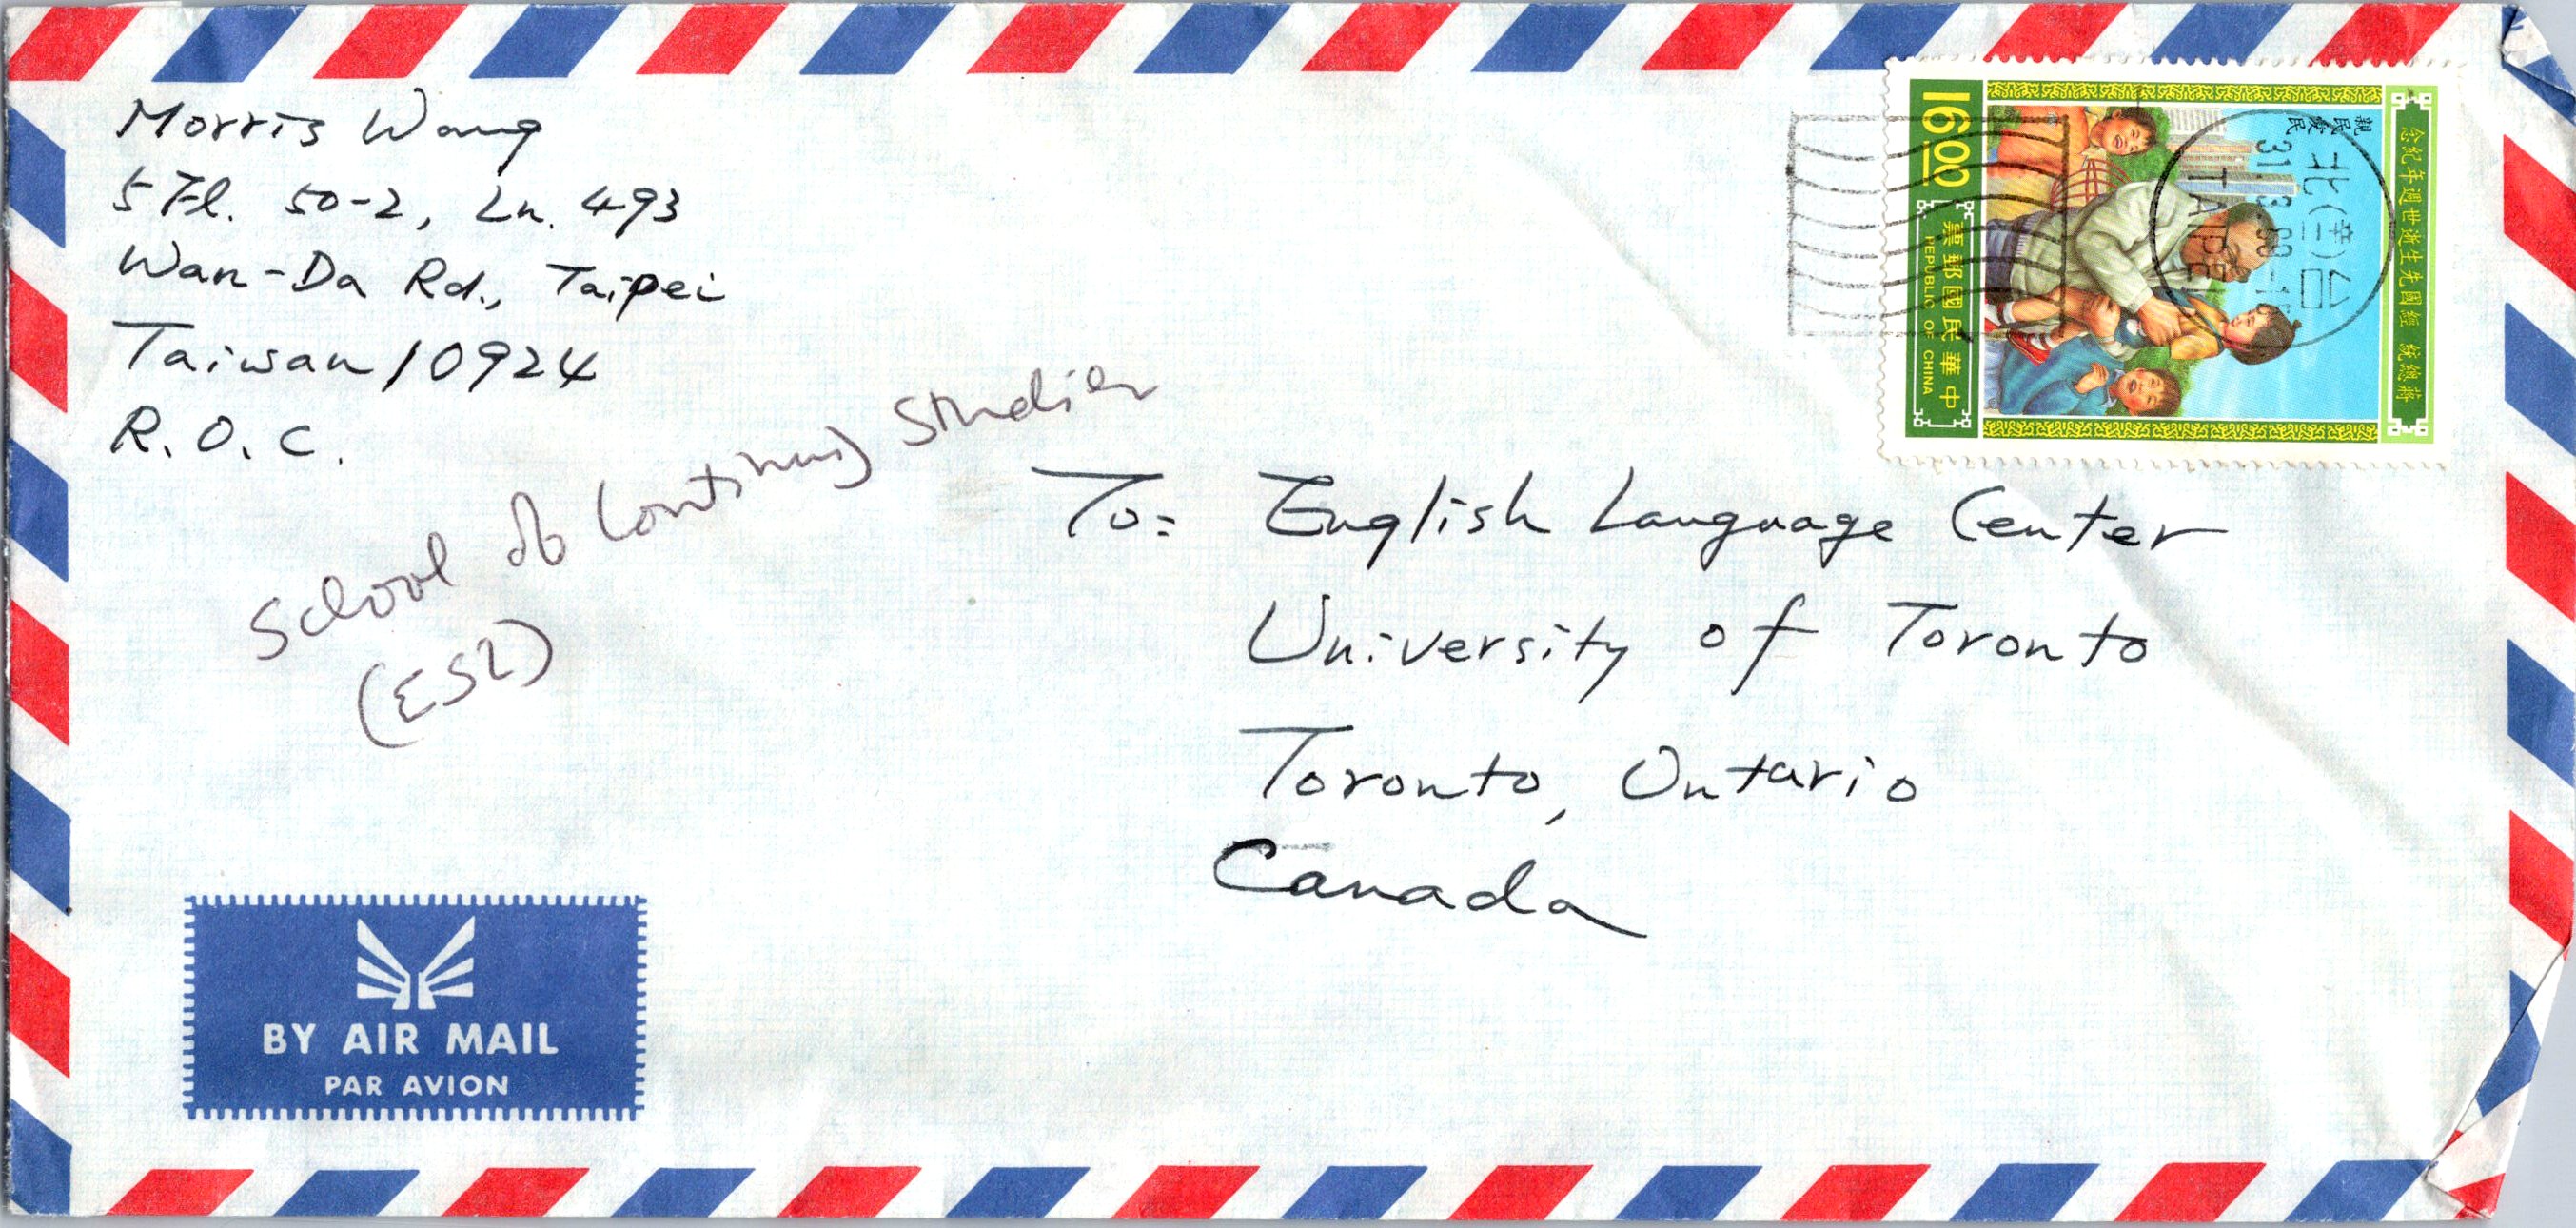 Morris Wang
5 Fl. 50-2, Ln. 493
Wan-Da Rd., Taipei
Taiwan 10924
R.O.C.
School of Continuing Studies
(ESL)
16.00
中華民國郵票
REPUBLIC OF CHINA
親民愛民
蔣總統經國先生逝世週年紀念
台北
TAIPEI
To: English Language Center
University of Toronto
Toronto, Ontario
Canada
BY AIR MAIL
PAR AVION